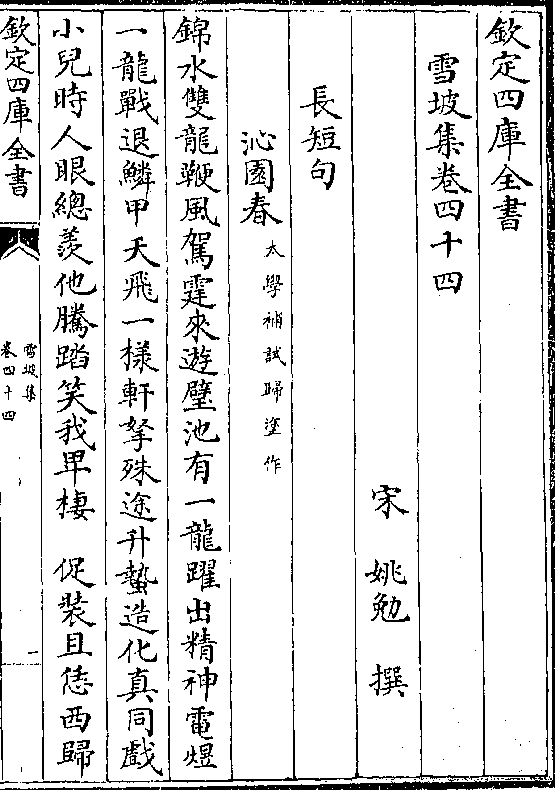 欽定四庫全書
雪坡集卷四十四
宋　姚勉　撰
長短句
沁園春太學補試歸塗作
錦水雙龍鞭風駕霆來遊璧池有一龍躍出精神電煜
一龍戰退鱗甲天飛一様軒拏殊途升蟄造化真同戲
小兒時人眼總羨他騰踏笑我卑棲　促裝且恁西歸
欽定四庫全書
雪坡集
卷四十四
一